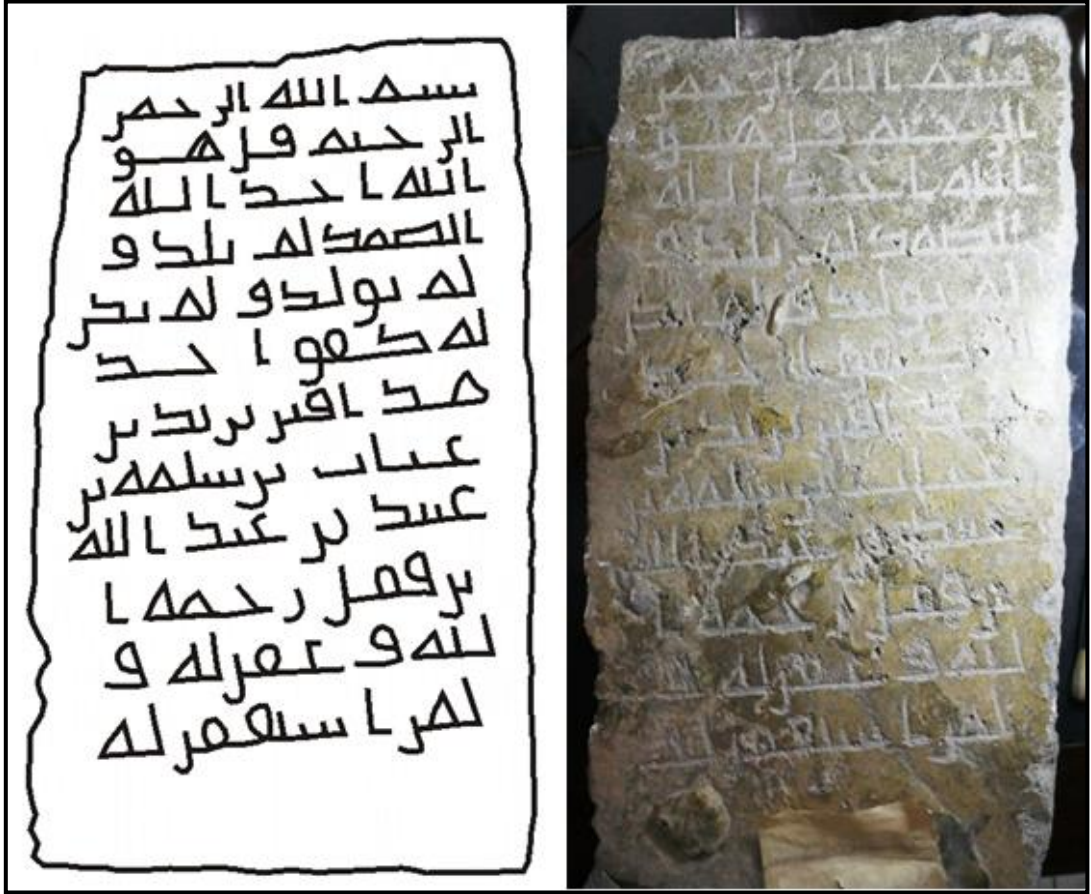 بسم الله الرحمن
الرحيم قل هو
الله احد الله
الصمد لم يلد و
لم يولد و لم يكن
له كفوا ا حد
هذا قبر يزيد بن
بن سلمه بن
عبيد بن عبد الله
بن رحمه ا
لله و غفر له و
لمن استغفر له